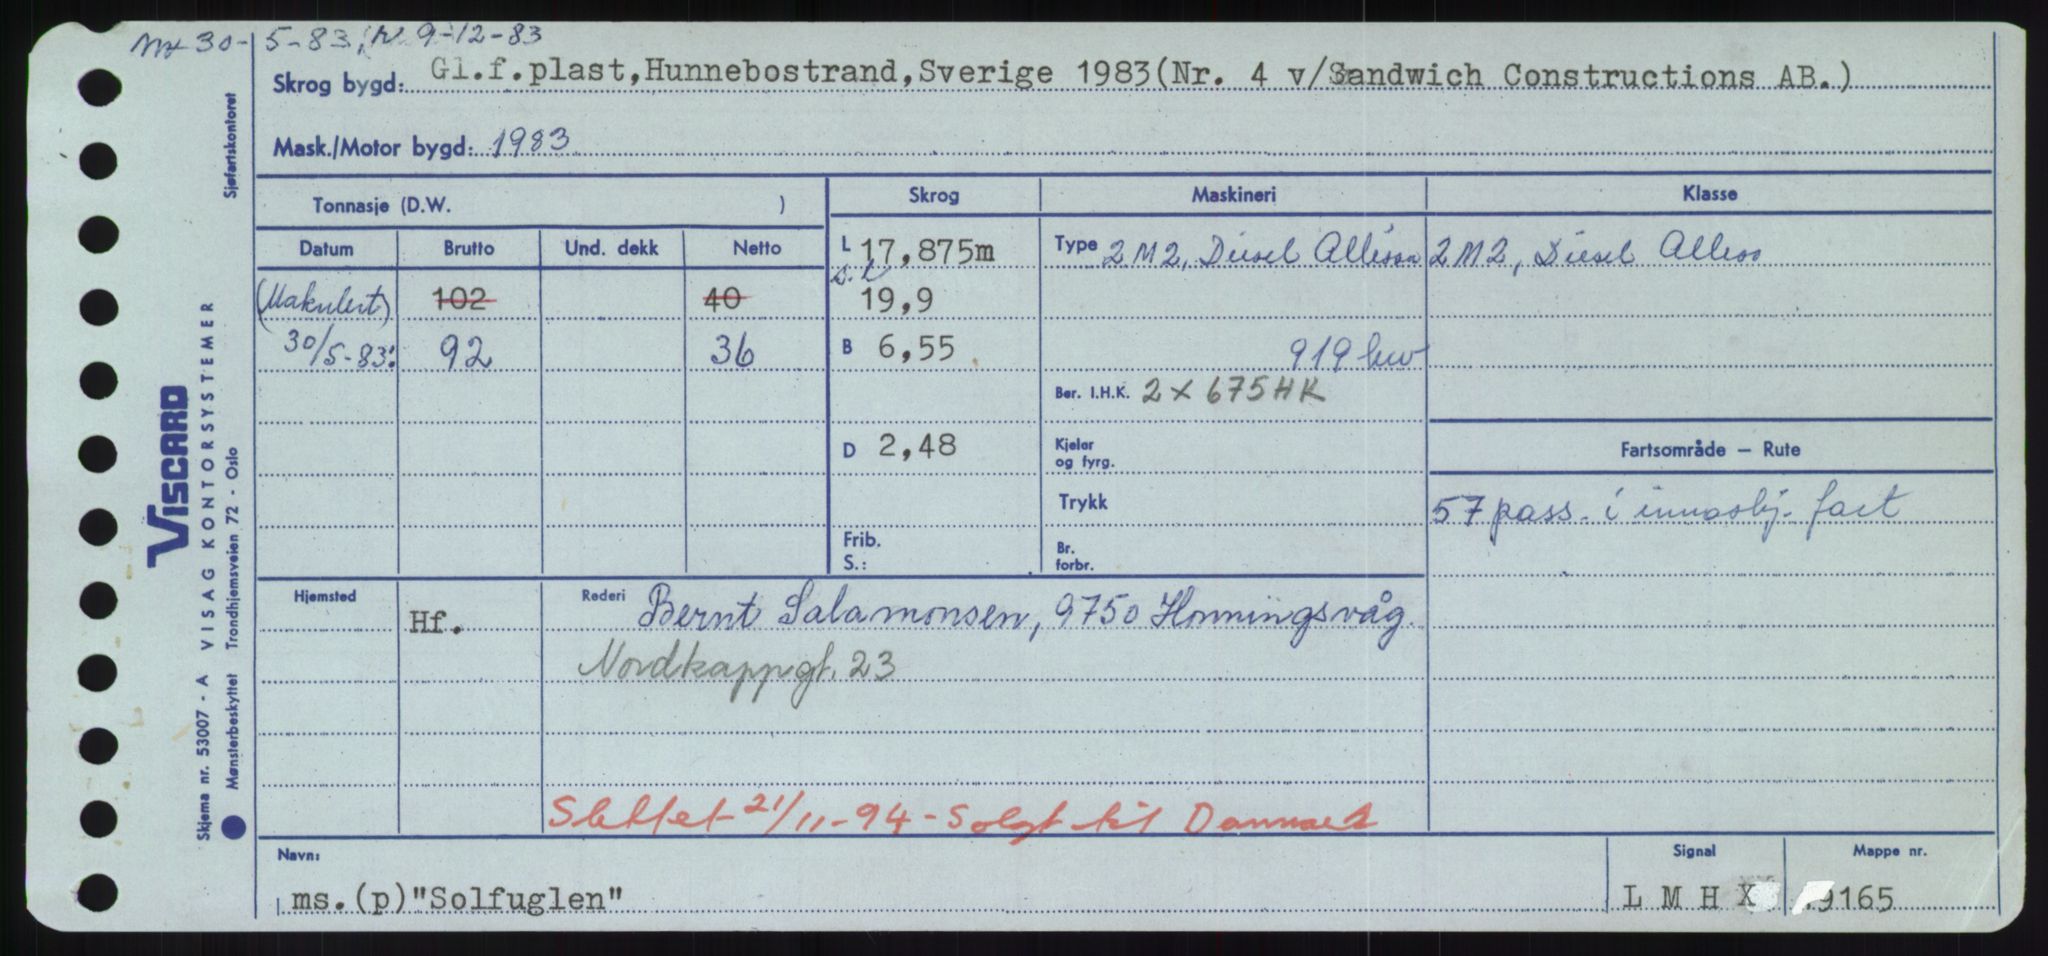 30-5-83, 9-12-83
Skrog bygd: Gl.f.plast,Hunnebostrand,Sverige 1983(Nr. 4 v/Sandwich Constructions AB.)
Mask./Motor bygd: 1983
Tonnasje (D.W. )
Skrog Maskineri Klasse
Datum Brutto Und. dekk Netto
L 17,875m
Type 2 M2, Diesel Allison 2 M2, Diesel
(Makulert) 102 40
19,9
30/5-83: 92 36
B 6,55
919 kw
Ber. I.H.K. 2 x 675 HK
D 2,48
Kjeler og fyrg.
Fartsområde — Rute
Trykk
57 pass. i innaskj. fart
Frib.
S.:
Br. forbr.
Hjemsted Hf.
Rederi Bernt Salamonsen, 9750 Honningsvåg.
Nordkappgt. 23
Slettet 21/11-94 - Solgt til Danmark
Navn: ms.(p)"Solfuglen"
Signal L M H X
Mappe nr. 9165
Sjøfartskontoret
VISCARD
VISAG KONTORSYSTEMER
Skjema nr. 53007 - A
Mønsterbeskyttet Trondhjemsveien 72 - Oslo